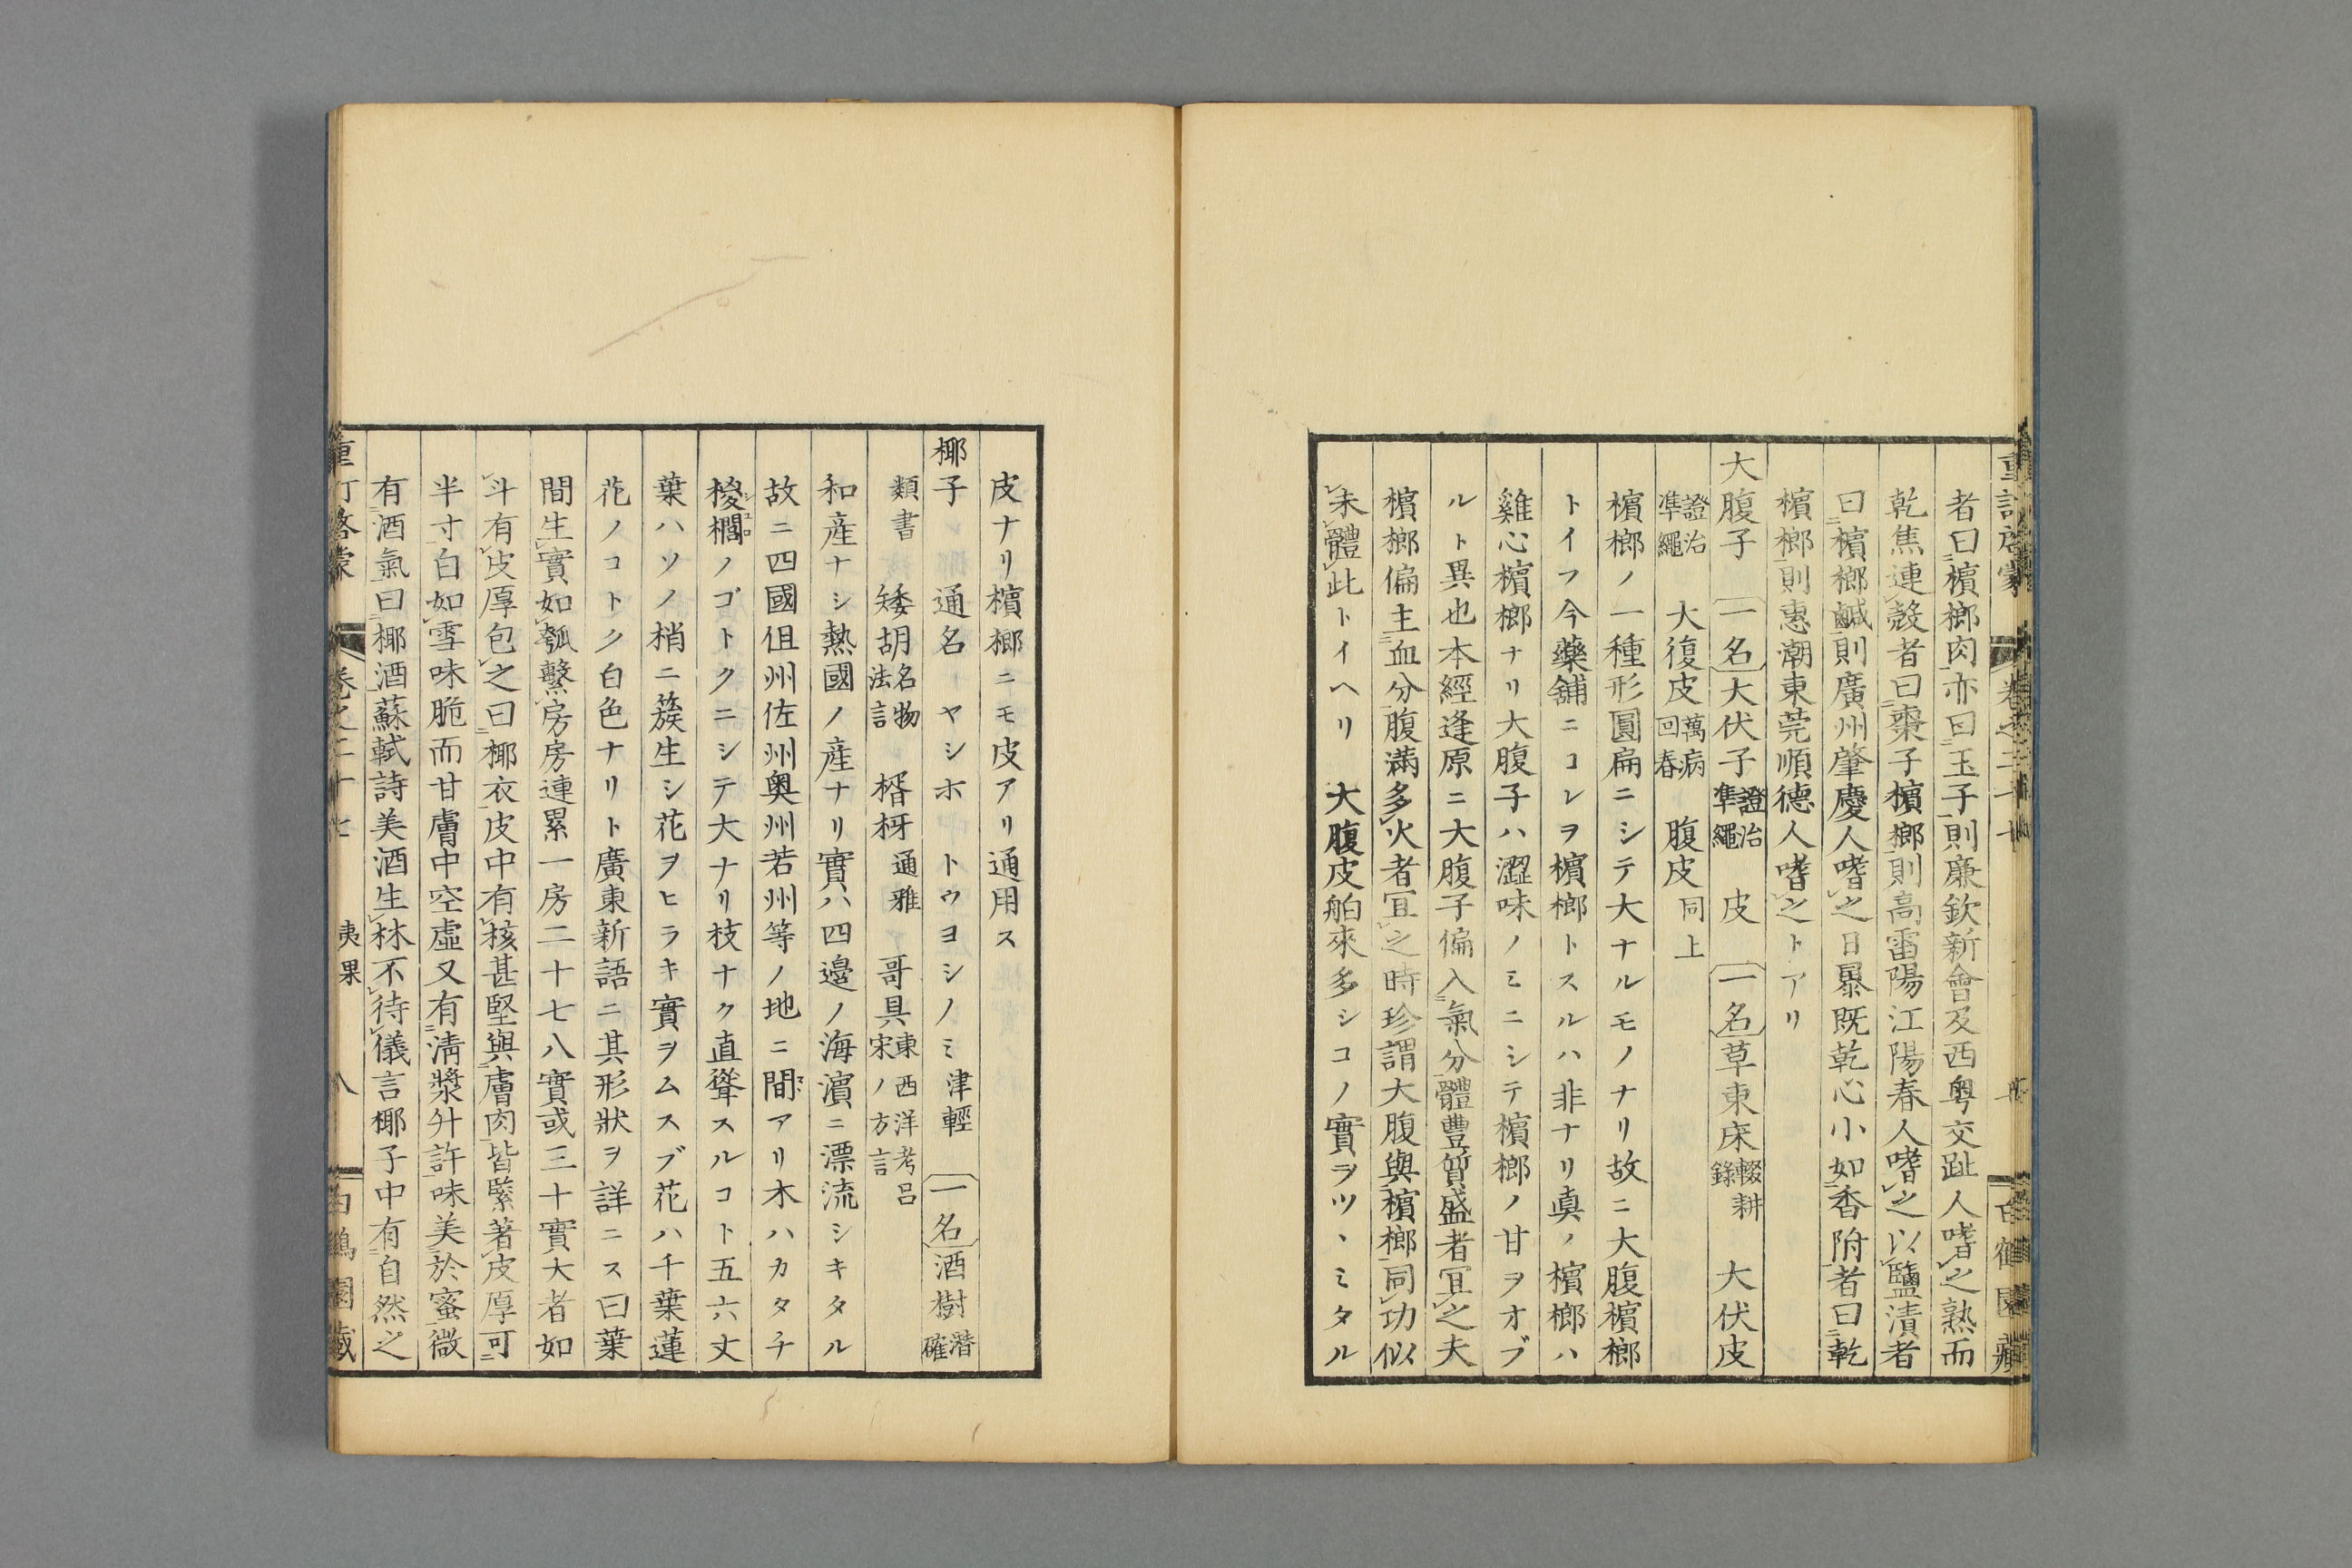 者曰檳榔肉亦曰玉子則廉欽新會及西粤交趾人嗜之熟而
乾焦連殼者曰棗子檳榔則高雷陽江陽春人嗜之以鹽漬者
曰檳榔鹹則廣州肇慶人嗜之日暴既乾心小如香附者曰乾
檳榔則惠潮東莞順德人嗜之トアリ
大腹子 一名 大伏子 證治準繩 皮 一名 草東床 輟耕錄 大伏皮
證治準繩 大復皮 萬病回春 腹皮 同上
檳榔ノ一種形圓扁ニシテ大ナルモノナリ故ニ大腹檳榔
トイフ今藥舖ニコレヲ檳榔トスルハ非ナリ眞ノ檳榔ハ
雞心檳榔ナリ大腹子ハ澀味ノミニシテ檳榔ノ甘ヲオブ
ルト異也本經逢原ニ大腹子偏入氣分體豐質盛者宜之夫
檳榔偏主血分腹滿多火者宜之時珍謂大腹與檳榔同功似
未體此トイヘリ 大腹皮舶來多シコノ實ヲツヽミタル
皮ナリ檳榔ニモ皮アリ通用ス
椰子 通名 ヤシホ トウヨシノミ 津輕 一名 酒樹 潛確
類書 矮胡 名物法言 楈枒 通雅 哥具 東西洋考 呂宋ノ方言
和産ナシ熱國ノ産ナリ實ハ四邊ノ海濵ニ漂流シキタル
故ニ四國伹州佐州奥州若州等ノ地ニ間アリ木ハカタチ
椶櫚ノゴトクニシテ大ナリ枝ナク直聳スルコト五六丈
葉ハソノ梢ニ簇生シ花ヲヒラキ實ヲムスブ花ハ千葉蓮
花ノコトク白色ナリト廣東新語ニ其形狀ヲ詳ニス曰葉
間生實如瓠繫房房連累一房二十七八實或三十實大者如
斗有皮厚包之曰椰衣皮中有核甚堅與膚肉皆緊著皮厚可
半寸白如雪味脆而甘膚中空虛又有淸漿升許味美於蜜微
有酒氣曰椰酒蘇軾詩美酒生林不待儀言椰子中有自然之
夷果 八